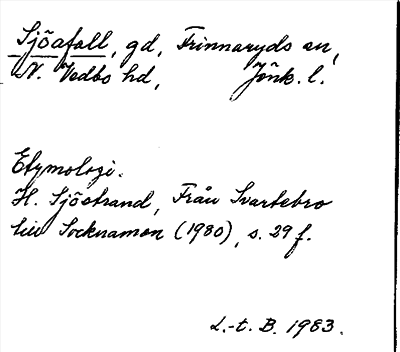 Sjöafall, gd, Frinnaryds sn,
N. Vedbo hd, Jönk. l.
Etymologi.
H. Sjöstrand, Från Svartebro
till Socknamon (1980), s. 29 f.
L.-t. B. 1983.